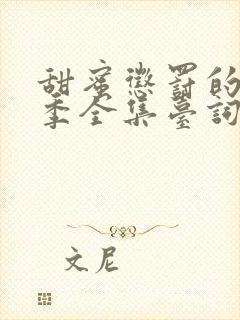 甜蜜懲罰的
季全集臺詞
文尼